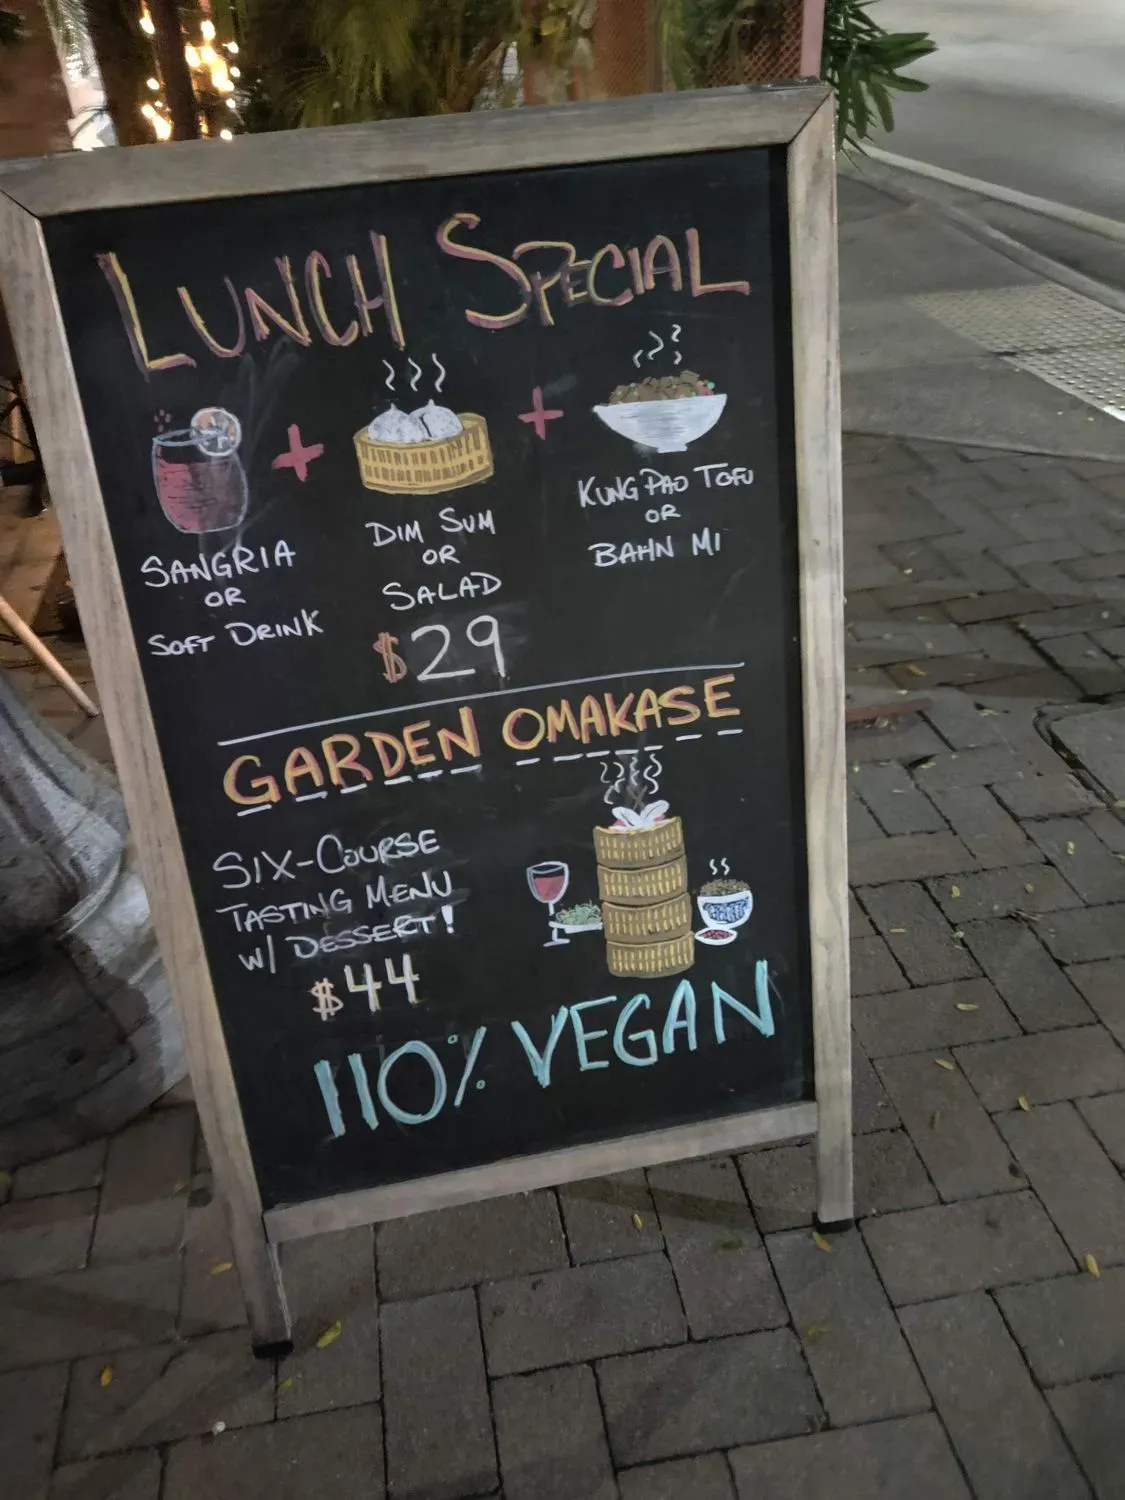 LUNCH SPECIAL
+ +
SANGRIA
OR
SOFT DRINK
DIM SUM
OR
SALAD
KUNG PAO TOFU
OR
BAHN MI
$29
GARDEN OMAKASE
SIX-COURSE
TASTING MENU
W/ DESSERT!
$44
110% VEGAN